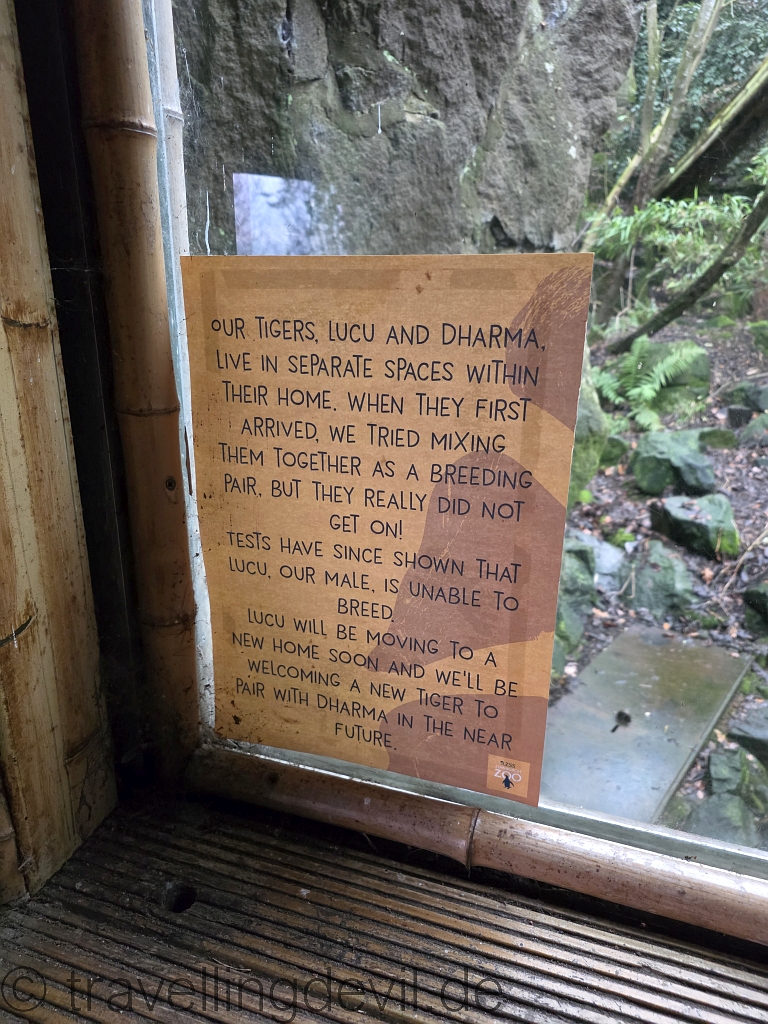 OUR TIGERS, LUCU AND DHARMA,
LIVE IN SEPARATE SPACES WITHIN
THEIR HOME. WHEN THEY FIRST
ARRIVED, WE TRIED MIXING
THEM TOGETHER AS A BREEDING
PAIR, BUT THEY REALLY DID NOT
GET ON!
TESTS HAVE SINCE SHOWN THAT
LUCU, OUR MALE, IS UNABLE TO
BREED.
LUCU WILL BE MOVING TO A
NEW HOME SOON AND WE'LL BE
WELCOMING A NEW TIGER TO
PAIR WITH DHARMA IN THE NEAR
FUTURE.
ZOO
© travellingdevil.de